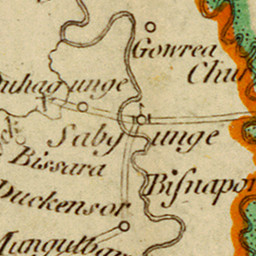 Gowrea
Chu
uhag unge
Saby unge
Bissara
Bisnapor
Duckensor
Mungulbar